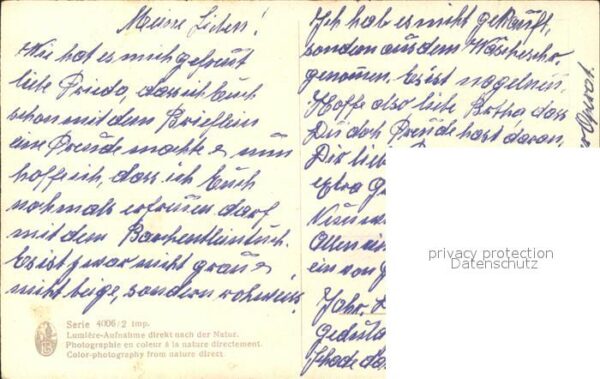 Meine Lieben!
Wie hat es mich gefreut
liebe Frieda, dass ich Euch
schon mit dem Brieflein
eine Freude machte & nun
hoffe ich, dass ich Euch
nochmals erfreuen darf
mit dem Barchentleintuch.
Es ist zwar nicht grau &
nicht beige, sondern rohweiss.
Serie 4006/2 Imp.
Lumière-Aufnahme direkt nach der Natur.
Photographie en couleur à la nature directement.
Color-photography from nature direct.
Ich hab es nicht gekauft,
sondern aus dem Wäscheschr.
genommen. Es ist nagelneu.
Hoffe also liebe Bertha dass
Du doch Freude hast daran.
Dir lieb
extra
Allen
ein von
privacy protection
Datenschutz
Jahr.
Schade das